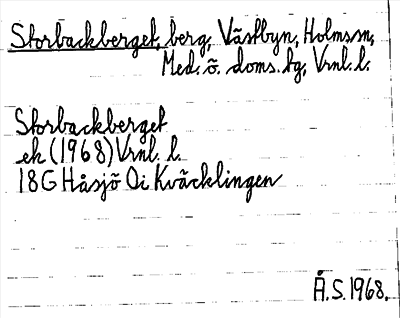 Storbackberget, berg, Västbyn, Holms sn,
Med. ö. doms. tg, Vrnl. l.
Storbackberget
ek (1968) Vrnl. l.
18G Håsjö Oi Kväcklingen
Å.S. 1968.